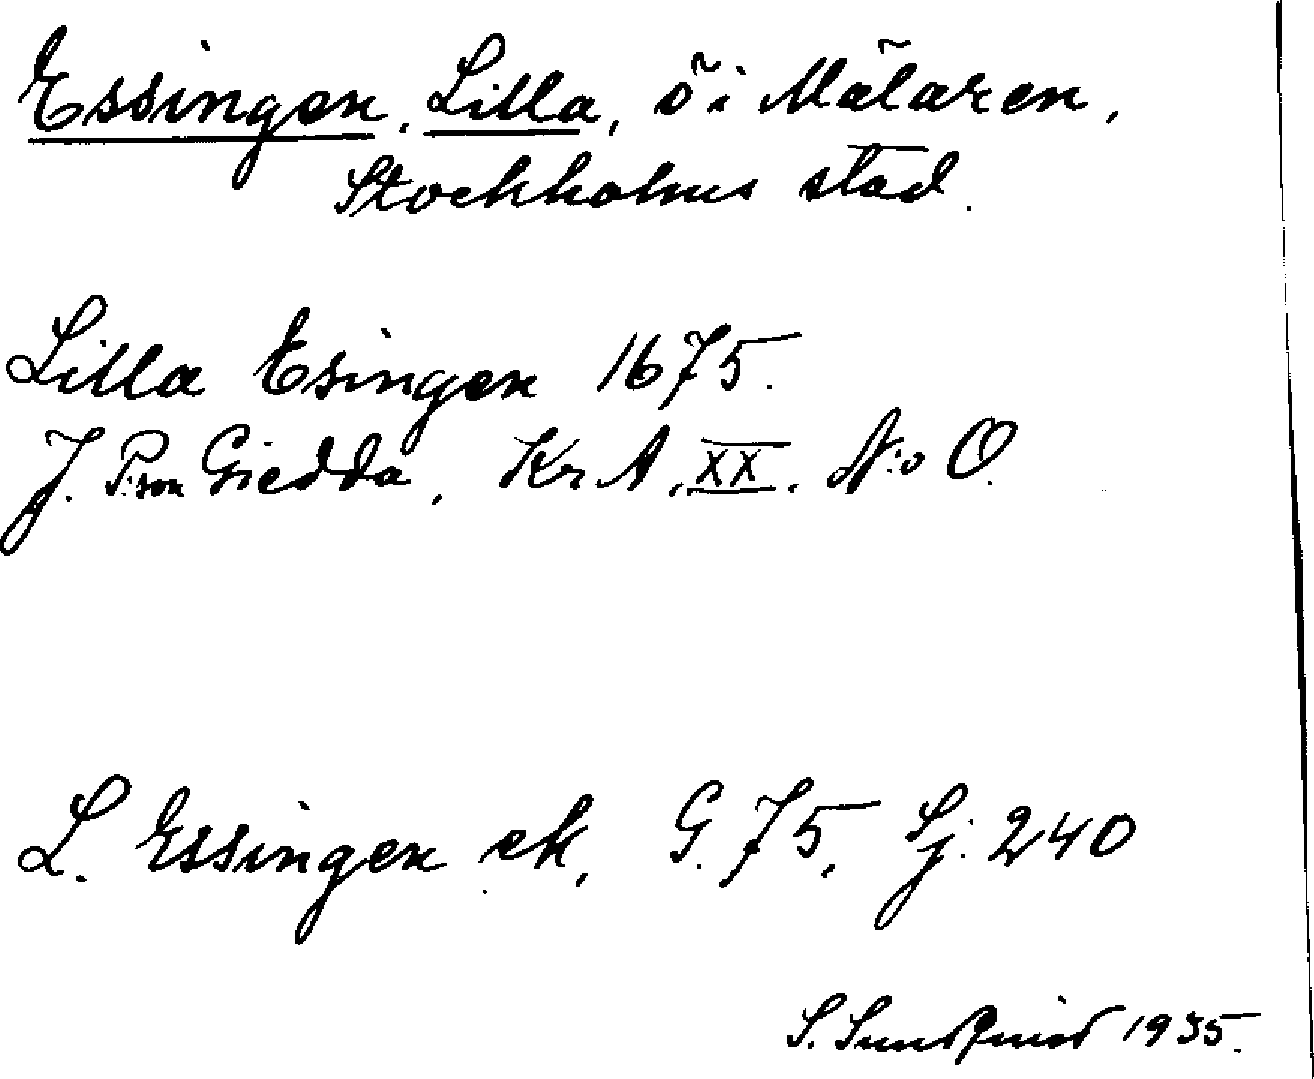 Essingen, Lilla, ö i Mälaren,
Stockholms stad.
Lilla Esingen 1675.
J. P:son Giedda, KrA, XX, N:o O.
L. Essingen ek, G. 75, Sj. 240
S. Sundqvist 1935.